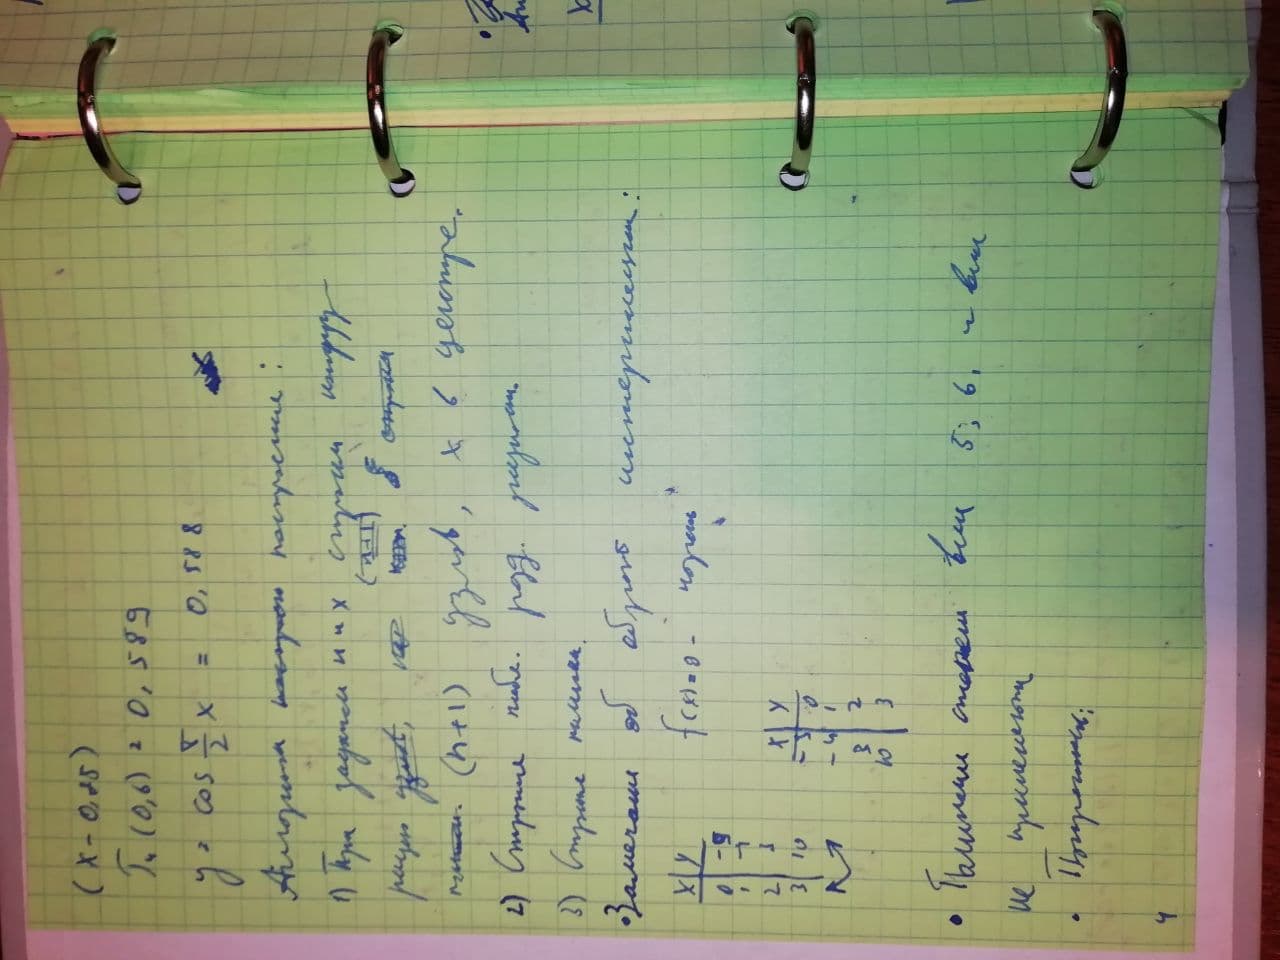 (x - 0,25)
P₄(0,6) = 0,589
y = cos π/2 x = 0,588
Алгоритм построения:
1) При заданном n и x строим конфигу-
рацию
(n+1) узлов, x в центре.
2) Строим табл. разд. разностей
3) Строим полином.
• Замечание об обратной интерполяции:
x y f(x)=0 - корень
0 -9
1
2 3
3 10
x y
0
1
3 2
10 3
• Полиномы степени выше 5, 6, и выше
не применяются
• Погрешность:
4